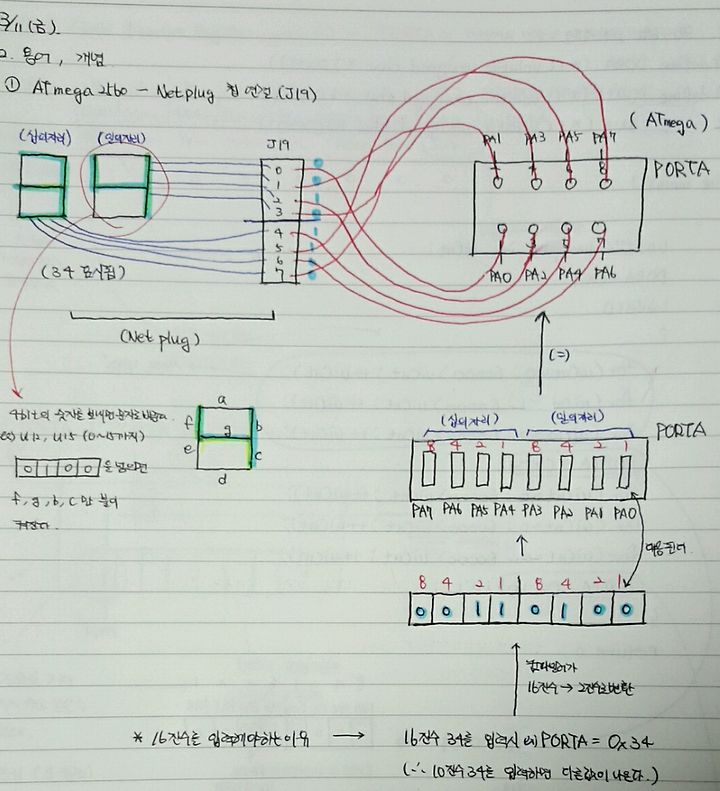 3/11(금).
2. 용어, 개념
① ATmega 2560 - Netplug 칩 연결 (J19)
(십의자리) (일의자리)
J19
0
1
2
3
4
5
6
7
0
0
1
0
1
1
0
0
(ATmega)
PA1 PA3 PA5 PA7
PORTA
PA0 PA2 PA4 PA6
(34 표시됨)
(Net plug)
(=)
4bit의 숫자를 보내면
ex) U12, U15 (0~15까지)
0 1 0 0 을 넣으면
f, g, b, c 만 불이
켜진다.
a
f b
g
e c
d
(십의자리) (일의자리)
8 4 2 1 8 4 2 1
PORTA
PA7 PA6 PA5 PA4 PA3 PA2 PA1 PA0
대응된다
8 4 2 1 8 4 2 1
0 0 1 1 0 1 0 0
컴파일러가
16진수 → 2진수로 변환
* 16진수를 입력해야하는 이유 → 16진수 34를 입력시 ex) PORTA = 0x34
(∴ 10진수 34를 입력하면 다른값이 나온다.)